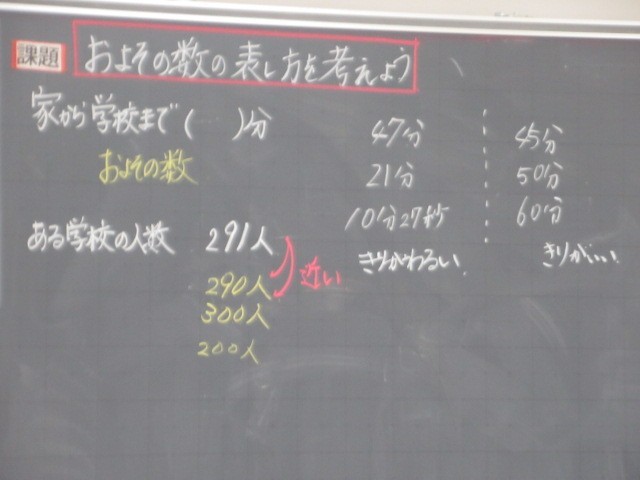 課題 およその数の表し方を考えよう
家から学校まで( )分
およその数
47分 45分
21分 50分
10分27秒 60分
きりがわるい. きりがいい.
ある学校の人数 291人
290人 近い
300人
200人